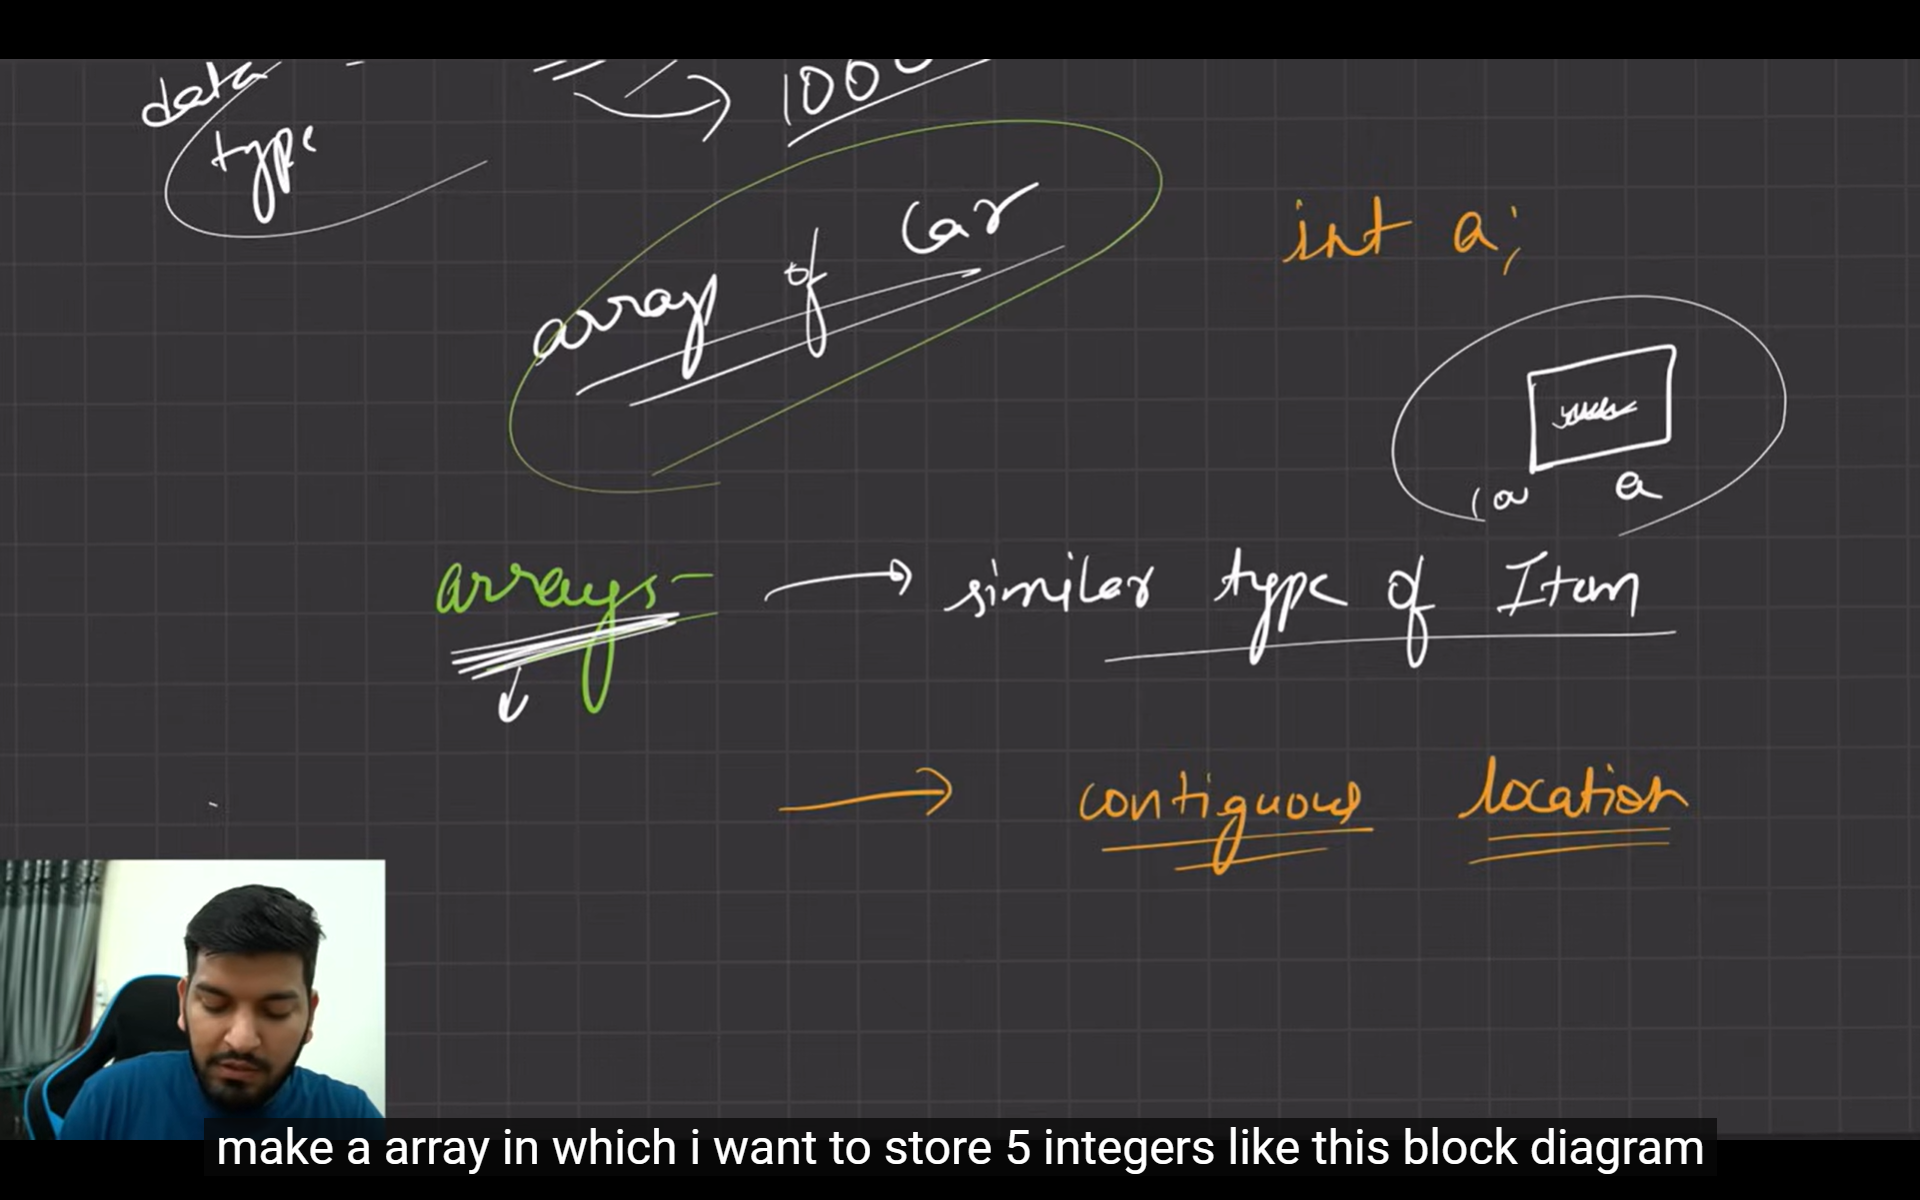 data
type
100
array of Car
int a;
a
arrays
similar type of Item
contiguous location
make a array in which i want to store 5 integers like this block diagram